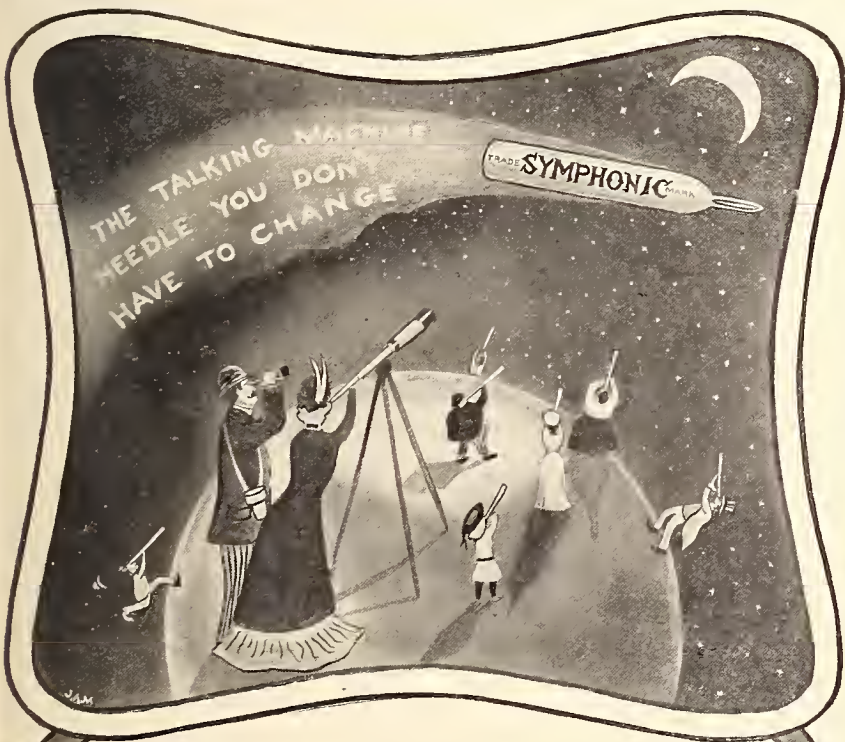 THE TALKING MACHINE
NEEDLE YOU DON'T
HAVE TO CHANGE
TRADE SYMPHONIC MARK
JAM